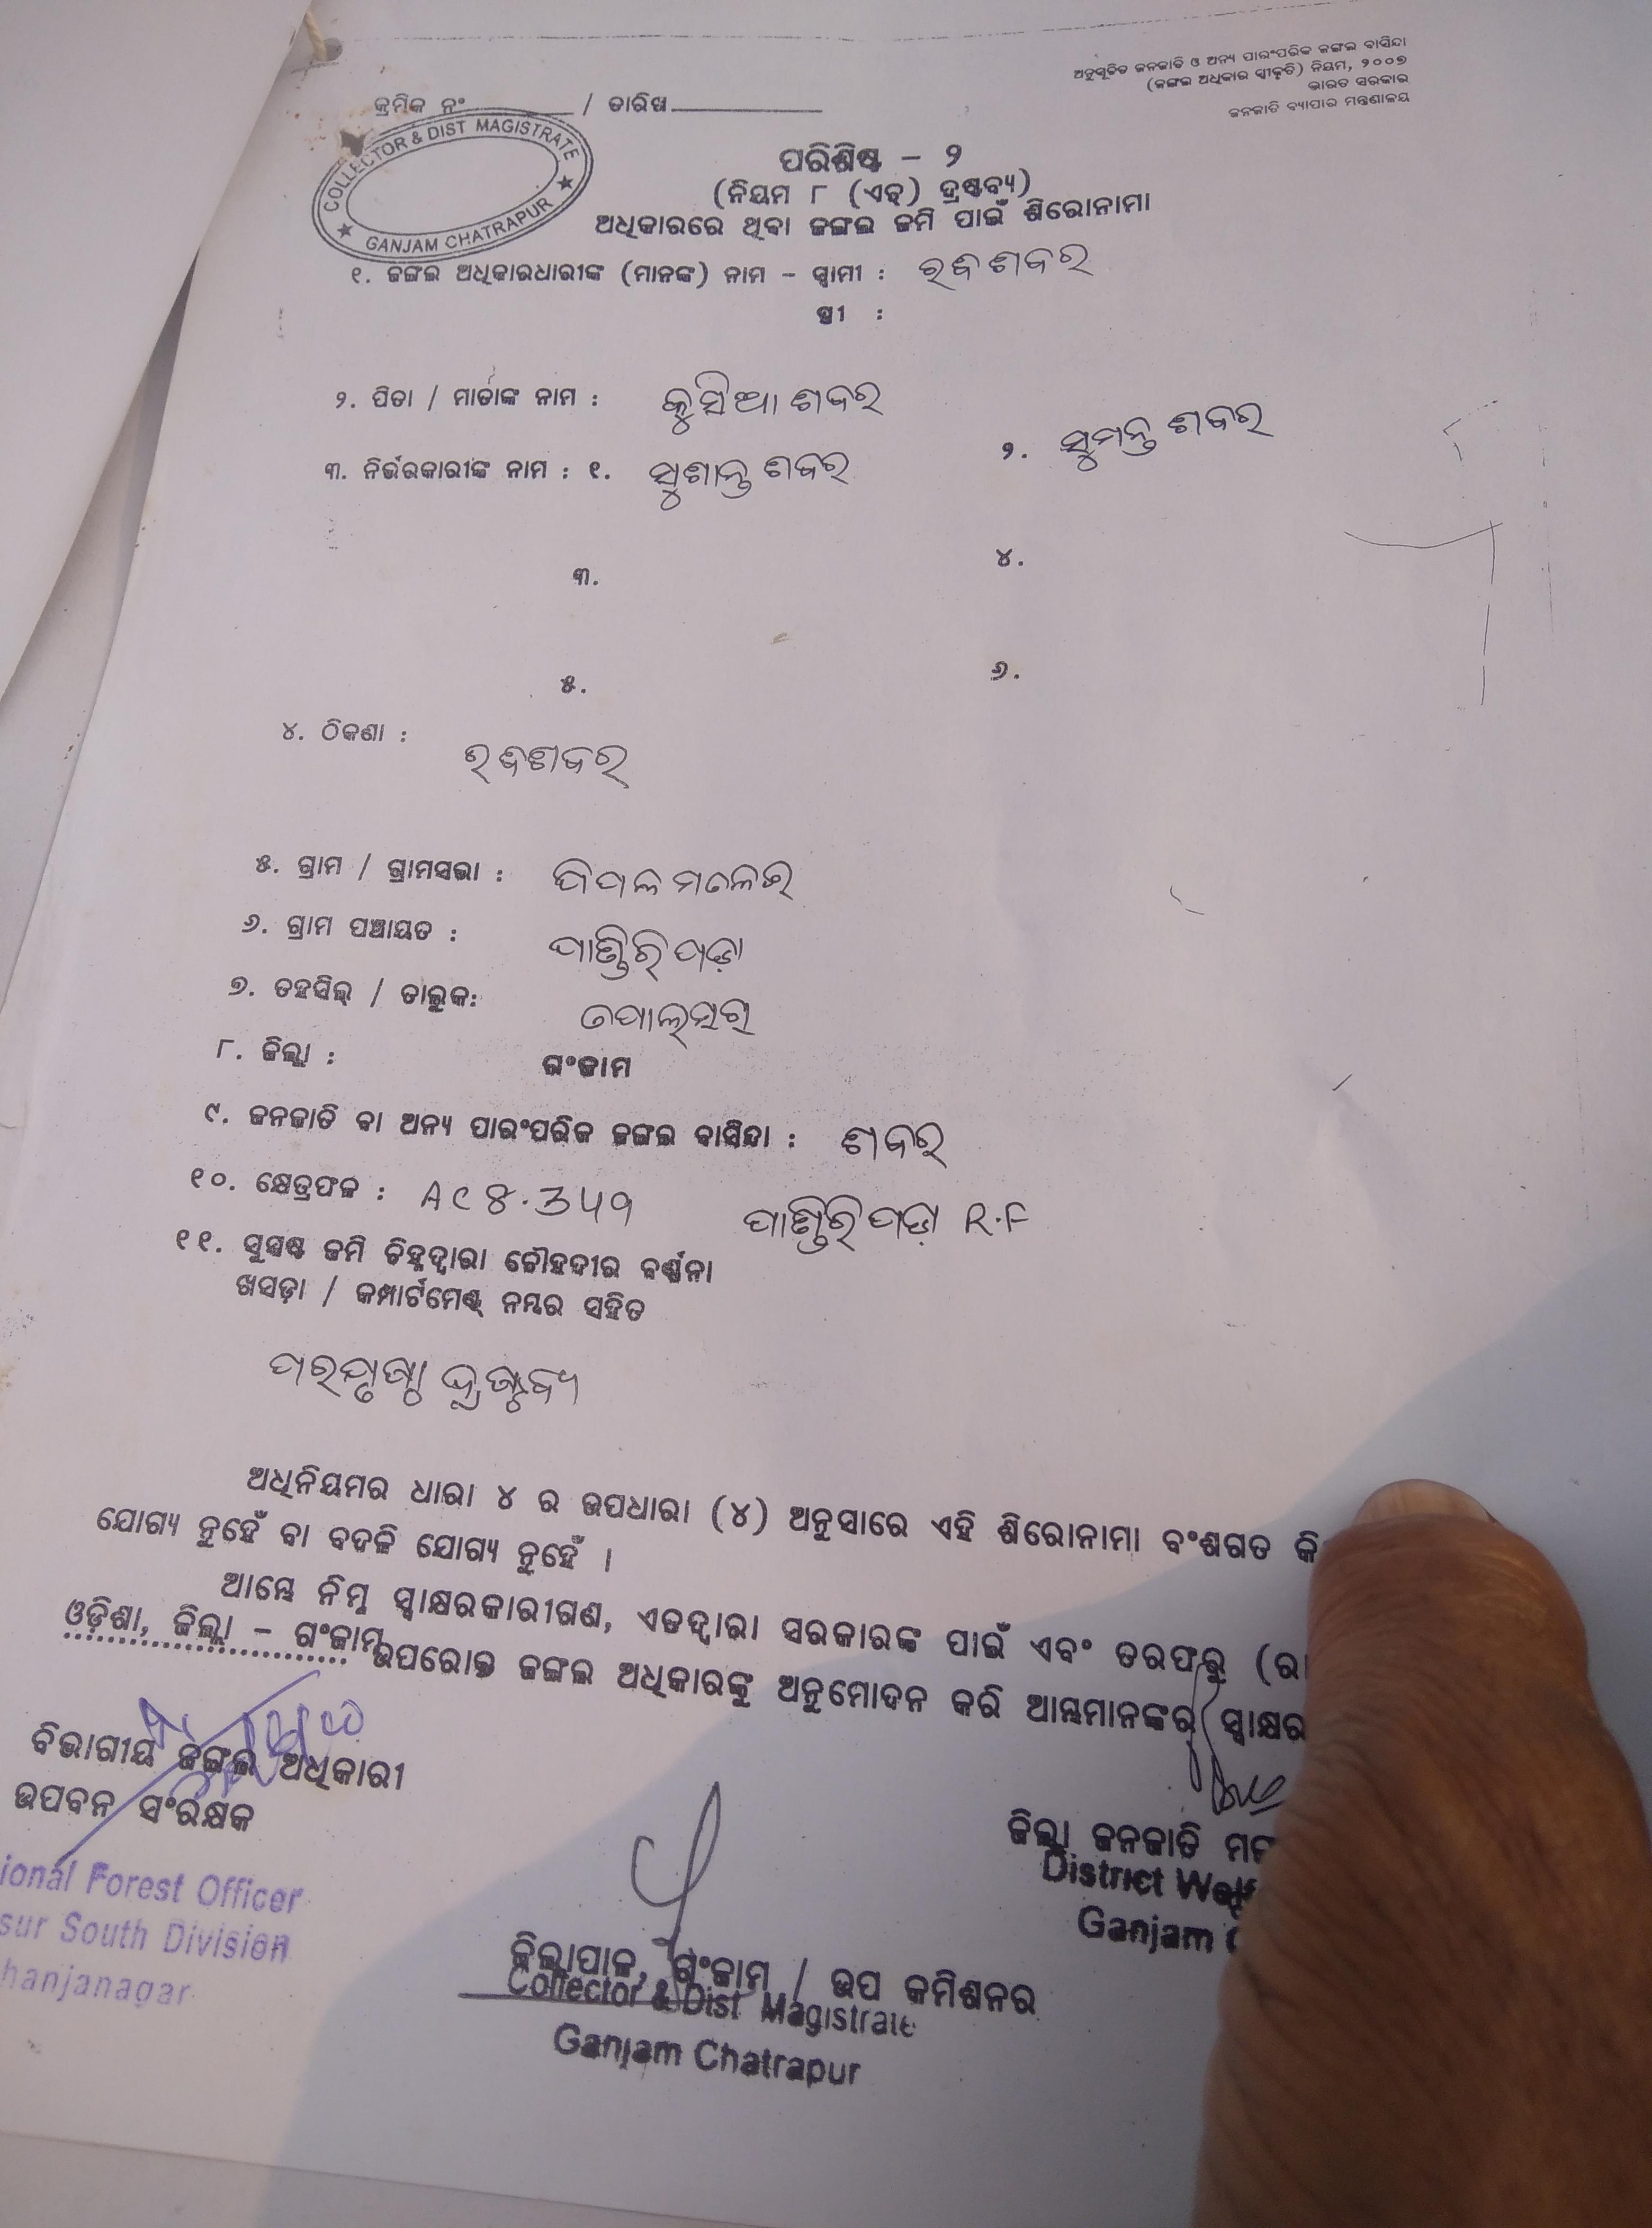 ଅନୁସୂଚିତ ଜନଜାତି ଓ ଅନ୍ୟ ପାରଂପରିକ ଜଙ୍ଗଲ ବାସିନ୍ଦା
(ଜଙ୍ଗଲ ଅଧିକାର ସ୍ୱୀକୃତି) ନିୟମ, ୨୦୦୭
ଭାରତ ସରକାର
ଜନଜାତି ବ୍ୟାପାର ମନ୍ତ୍ରଣାଳୟ
କ୍ରମିକ ନଂ / ତାରିଖ
COLLECTOR & DIST MAGISTRATE
GANJAM CHATRAPUR
ପରିଶିଷ୍ଟ – ୨
(ନିୟମ ୮ (ଏଚ୍) ଦ୍ରଷ୍ଟବ୍ୟ)
ଅଧିକାରରେ ଥିବା ଜଙ୍ଗଲ ଜମି ପାଇଁ ଶିରୋନାମା
୧. ଜଙ୍ଗଲ ଅଧିକାରଧାରୀଙ୍କ (ମାନଙ୍କ) ନାମ – ସ୍ୱାମୀ : ଶବର
ସ୍ତ୍ରୀ :
୨. ପିତା / ମାତାଙ୍କ ନାମ : ଶବର
୩. ନିର୍ଭରକାରୀଙ୍କ ନାମ : ୧. ସୁଶାନ୍ତ ଶବର ୨. ସୁମନ୍ତ ଶବର
୩. ୪.
୫. ୬.
୪. ଠିକଣା : ଶବର
୫. ଗ୍ରାମ / ଗ୍ରାମସଭା :
୬. ଗ୍ରାମ ପଞ୍ଚାୟତ :
୭. ତହସିଲ୍ / ତାଲୁକ:
୮. ଜିଲ୍ଲା : ଗଂଜାମ
୯. ଜନଜାତି ବା ଅନ୍ୟ ପାରଂପରିକ ଜଙ୍ଗଲ ବାସିନ୍ଦା : ଶବର
୧୦. କ୍ଷେତ୍ରଫଳ : R.F
୧୧. ସୁସ୍ପଷ୍ଟ ଜମି ଚିହ୍ନଦ୍ୱାରା ଚୌହଦୀର ବର୍ଣ୍ଣନା
ଖସଡ଼ା / କମ୍ପାର୍ଟମେଣ୍ଟ୍ ନମ୍ବର ସହିତ
ପରପୃଷ୍ଠା ଦ୍ରଷ୍ଟବ୍ୟ
ଅଧିନିୟମର ଧାରା ୪ ର ଉପଧାରା (୪) ଅନୁସାରେ ଏହି ଶିରୋନାମା ବଂଶଗତ
ଯୋଗ୍ୟ ନୁହେଁ ବା ବଦଳି ଯୋଗ୍ୟ ନୁହେଁ ।
ଆମ୍ଭେ ନିମ୍ନ ସ୍ୱାକ୍ଷରକାରୀଗଣ, ଏତଦ୍ୱାରା ସରକାରଙ୍କ ପାଇଁ ଏବଂ ତରଫରୁ
ଓଡ଼ିଶା, ଜିଲ୍ଲା – ଗଂଜାମ ଉପରୋକ୍ତ ଜଙ୍ଗଲ ଅଧିକାରଙ୍କୁ ଅନୁମୋଦନ କରି ଆମ୍ଭମାନଙ୍କର ସ୍ୱାକ୍ଷର
ବିଭାଗୀୟ ଜଙ୍ଗଲ ଅଧିକାରୀ
ଉପବନ ସଂରକ୍ଷକ
ional Forest Officer
sur South Division
hanjanagar
ଜିଲ୍ଲା ଜନଜାତି
District Welf
Ganjam
ଜିଲ୍ଲାପାଳ, ଗଂଜାମ / ଉପ କମିଶନର
Collector & Dist Magistrate
Ganjam Chatrapur